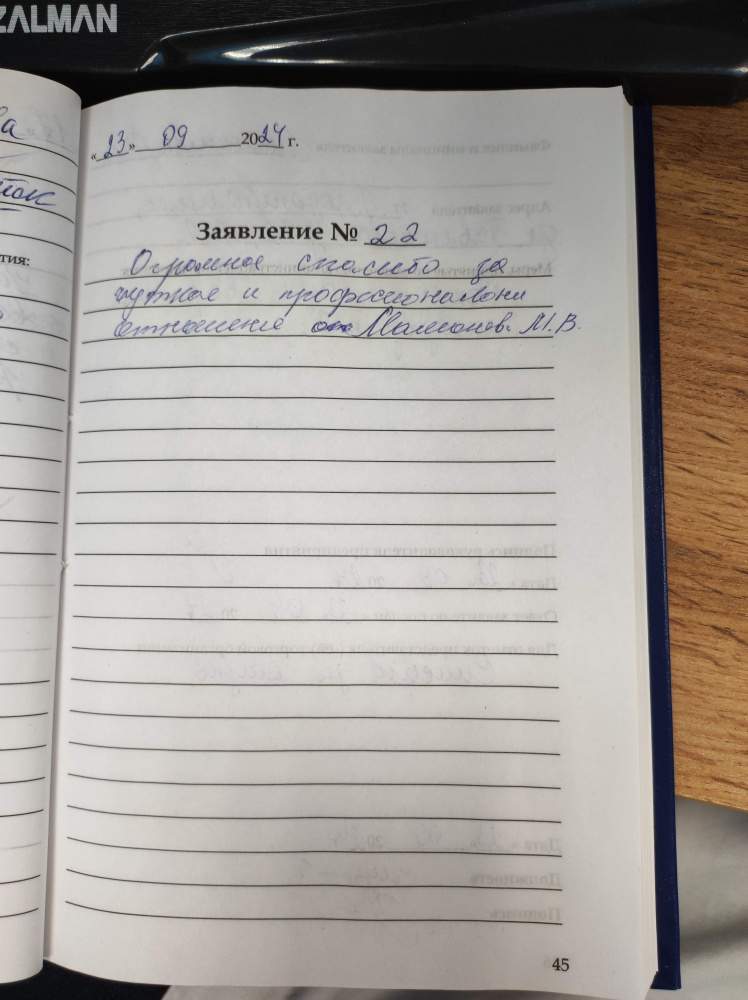 ZALMAN
«23» 09 2024 г.
тия:
Заявление № 22
Огромное спасибо за
чуткое и профессиональн
отношение от М.В.
45